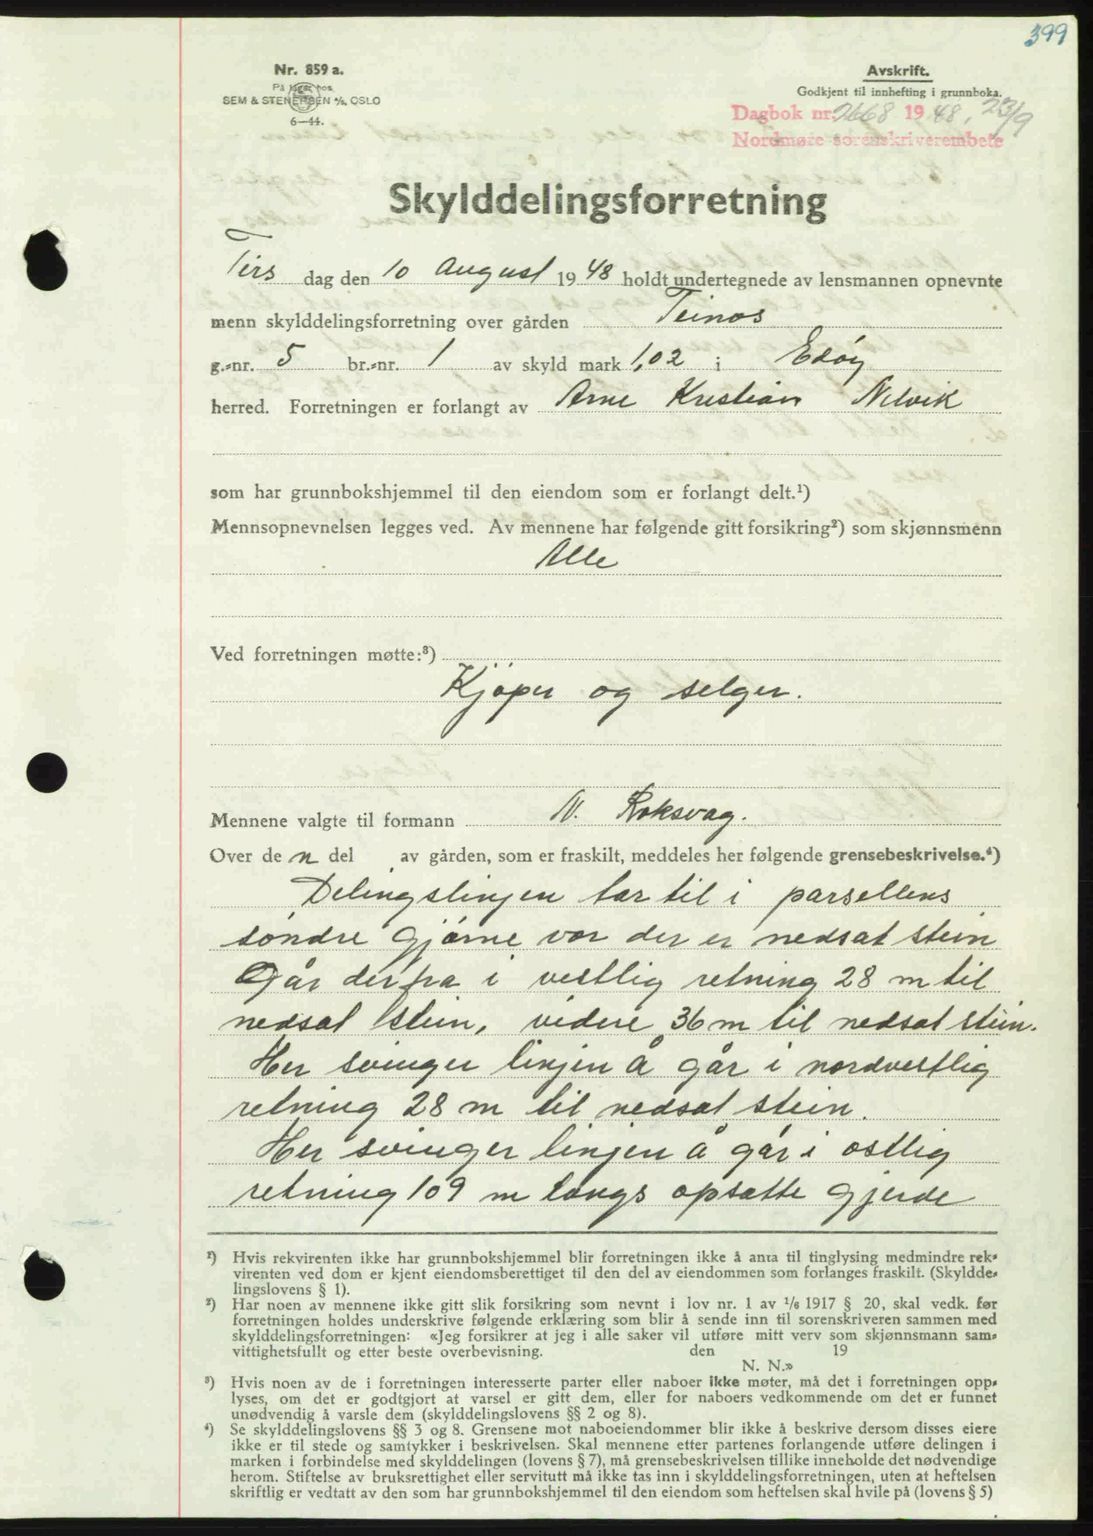 399
Nr. 859 a.
På lager hos
SEM & STENERSEN A/S, OSLO
6—44.
Avskrift.
Godkjent til innhefting i grunnboka.
Dagbok nr. 2668 1948, 23/9
Nordmøre sorenskriverembete
Skylddelingsforretning
Tirs dag den 10 August 1948 holdt undertegnede av lensmannen opnevnte
menn skylddelingsforretning over gården Teinos
g.-nr. 5 br.-nr. 1 av skyld mark 1,02 i Edöy
herred. Forretningen er forlangt av Arne Kristian Nelvik
som har grunnbokshjemmel til den eiendom som er forlangt delt.¹)
Mennsopnevnelsen legges ved. Av mennene har følgende gitt forsikring²) som skjønnsmenn
Alle
Ved forretningen møtte:³)
Kjöper og selger.
Mennene valgte til formann N. Roksvag.
Over de n del av gården, som er fraskilt, meddeles her følgende grensebeskrivelse.⁴)
Delingslinjen tar til i parsellens
söndre gjörne vor der er nedsat stein
Går derfra i vestlig retning 28 m til
nedsat stein, videre 36 m til nedsat stein.
Her svinger linjen å går i nordvestlig
retning 28 m til nedsat stein.
Her svinger linjen å går i ostlig
retning 109 m langs opsatte gjerde
¹) Hvis rekvirenten ikke har grunnbokshjemmel blir forretningen ikke å anta til tinglysing medmindre rek-
virenten ved dom er kjent eiendomsberettiget til den del av eiendommen som forlanges fraskilt. (Skyldde-
lingslovens § 1).
²) Har noen av mennene ikke gitt slik forsikring som nevnt i lov nr. 1 av 1/6 1917 § 20, skal vedk. før
forretningen holdes underskrive følgende erklæring som blir å sende inn til sorenskriveren sammen med
skylddelingsforretningen: «Jeg forsikrer at jeg i alle saker vil utføre mitt verv som skjønnsmann sam-
vittighetsfullt og etter beste overbevisning. den 19
N. N.»
³) Hvis noen av de i forretningen interesserte parter eller naboer ikke møter, må det i forretningen opp-
lyses, om det er godtgjort at varsel er gitt dem, eller for naboers vedkommende om det er funnet
unødvendig å varsle dem (skylddelingslovens §§ 2 og 8).
⁴) Se skylddelingslovens §§ 3 og 8. Grensene mot naboeiendommer blir ikke å beskrive dersom disses eiere
ikke er til stede og samtykker i beskrivelsen. Skal mennene etter partenes forlangende utføre delingen i
marken i forbindelse med skylddelingen (lovens § 7), må grensebeskrivelsen tillike inneholde det nødvendige
herom. Stiftelse av bruksrettighet eller servitutt må ikke tas inn i skylddelingsforretningen, uten at heftelsen
skriftlig er vedtatt av den som har grunnbokshjemmel til den eiendom som heftelsen skal hvile på (lovens § 5)